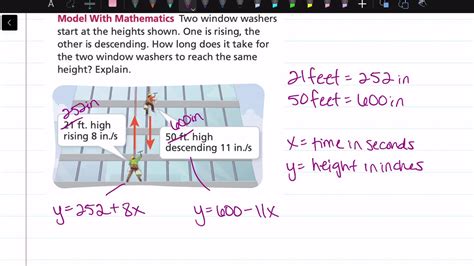 Model With Mathematics Two window washers
start at the heights shown. One is rising, the
other is descending. How long does it take for
the two window washers to reach the same
height? Explain.
252in
21 ft. high
rising 8 in./s
600in
50 ft. high
descending 11 in./s
y=252+8x
y=600-11x
21 feet = 252 in
50 feet = 600 in
x = time in seconds
y = height in inches